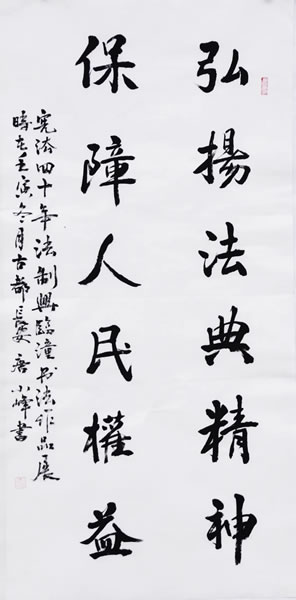 弘揚法典精神
保障人民權益
憲法四十年法制興臨潼书法作品展
時在壬寅冬月古都長安唐小峰書